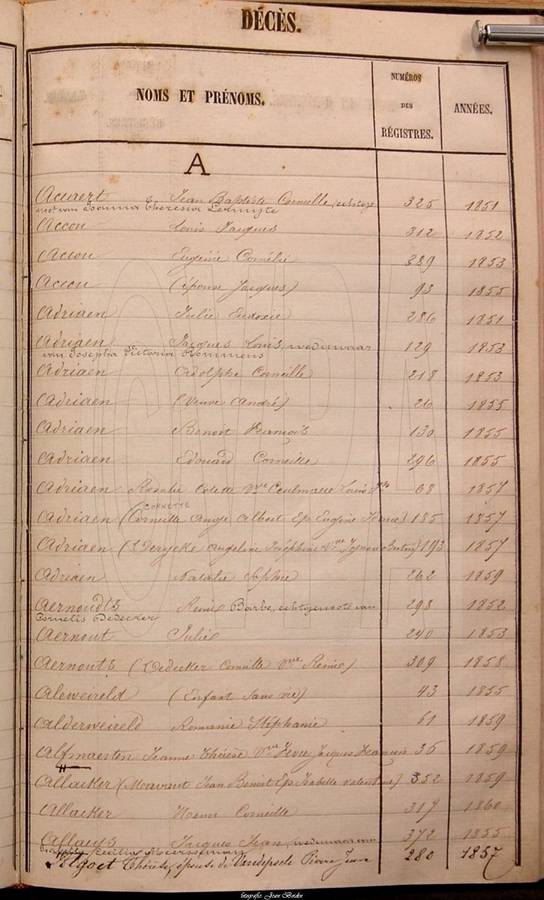 DÉCÈS.
NOMS ET PRÉNOMS.
NUMÉROS
DES
RÉGISTRES.
ANNÉES.
A
Accaert Jean Baptiste Corneille 325 1851
Theresia
Accou Louis Jacques 312 1852
Accou Eugénie Cornélie 339 1853
Accou (épouse Jacques) 93 1855
Adriaen Julie 286 1851
Adriaen Jacques Louis, weduwaar 129 1853
van Josepha Victoria Hommens
Adriaen Adolphe Corneille 218 1853
Adriaen (Veuve André) 26 1855
Adriaen Benoit François 130 1855
Adriaen Edouard Corneille 296 1855
Adriaen Rosalie Colette Vve Louis 68 1857
CORNETTE
Adriaen (Corneille Ange Albert Ep. Eugénie) 185 1857
Adriaen (Angeline Joséphine Vve) 193 1857
Adriaen Natalie Sophie 262 1859
Aernoudts Reine Barbe, echtgenoote van 293 1852
Cornelis Dedecker
Aernout Julie 240 1853
Aernouts (Dedecker Corneille Vve Reine) 309 1858
Aleweireld (Enfant sans vie) 43 1855
Alderweireld Romanie Stéphanie 61 1859
Alfmaerten Jeanne Thérèse Vve Jacques François 35 1859
Allacker (Jean Benoit Ep. Isabelle) 352 1859
Allacker Corneille 317 1860
Allaeys Jacques Jean, weduwaar van 372 1855
Thérèse, épouse de Vandepoele Pierre Jean 280 1857
fotografie: Jean Boden